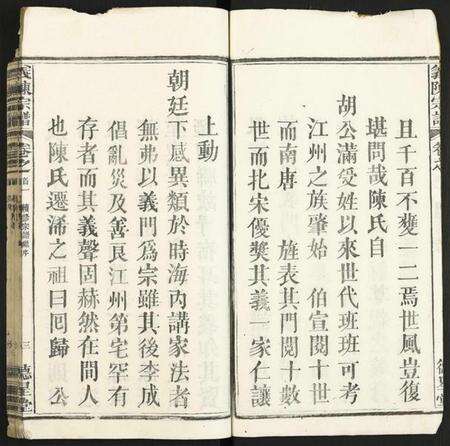 且千百不獲一二焉世風豈復
堪問哉陳氏自
胡公滿受姓以來世代班班可考
江州之族肇始 伯宣閱十世
而南唐 旌表其門閱十數
世而北宋優獎其義一家仁讓
上動
朝廷下感異類於時海內講家法者
無弗以義門爲宗雖其後李成
倡亂災及善良江州第宅罕有
存者而其義聲固赫然在問人
也陳氏遷浠之祖曰囘歸 公
義陳宗譜
卷之首
三
德星堂